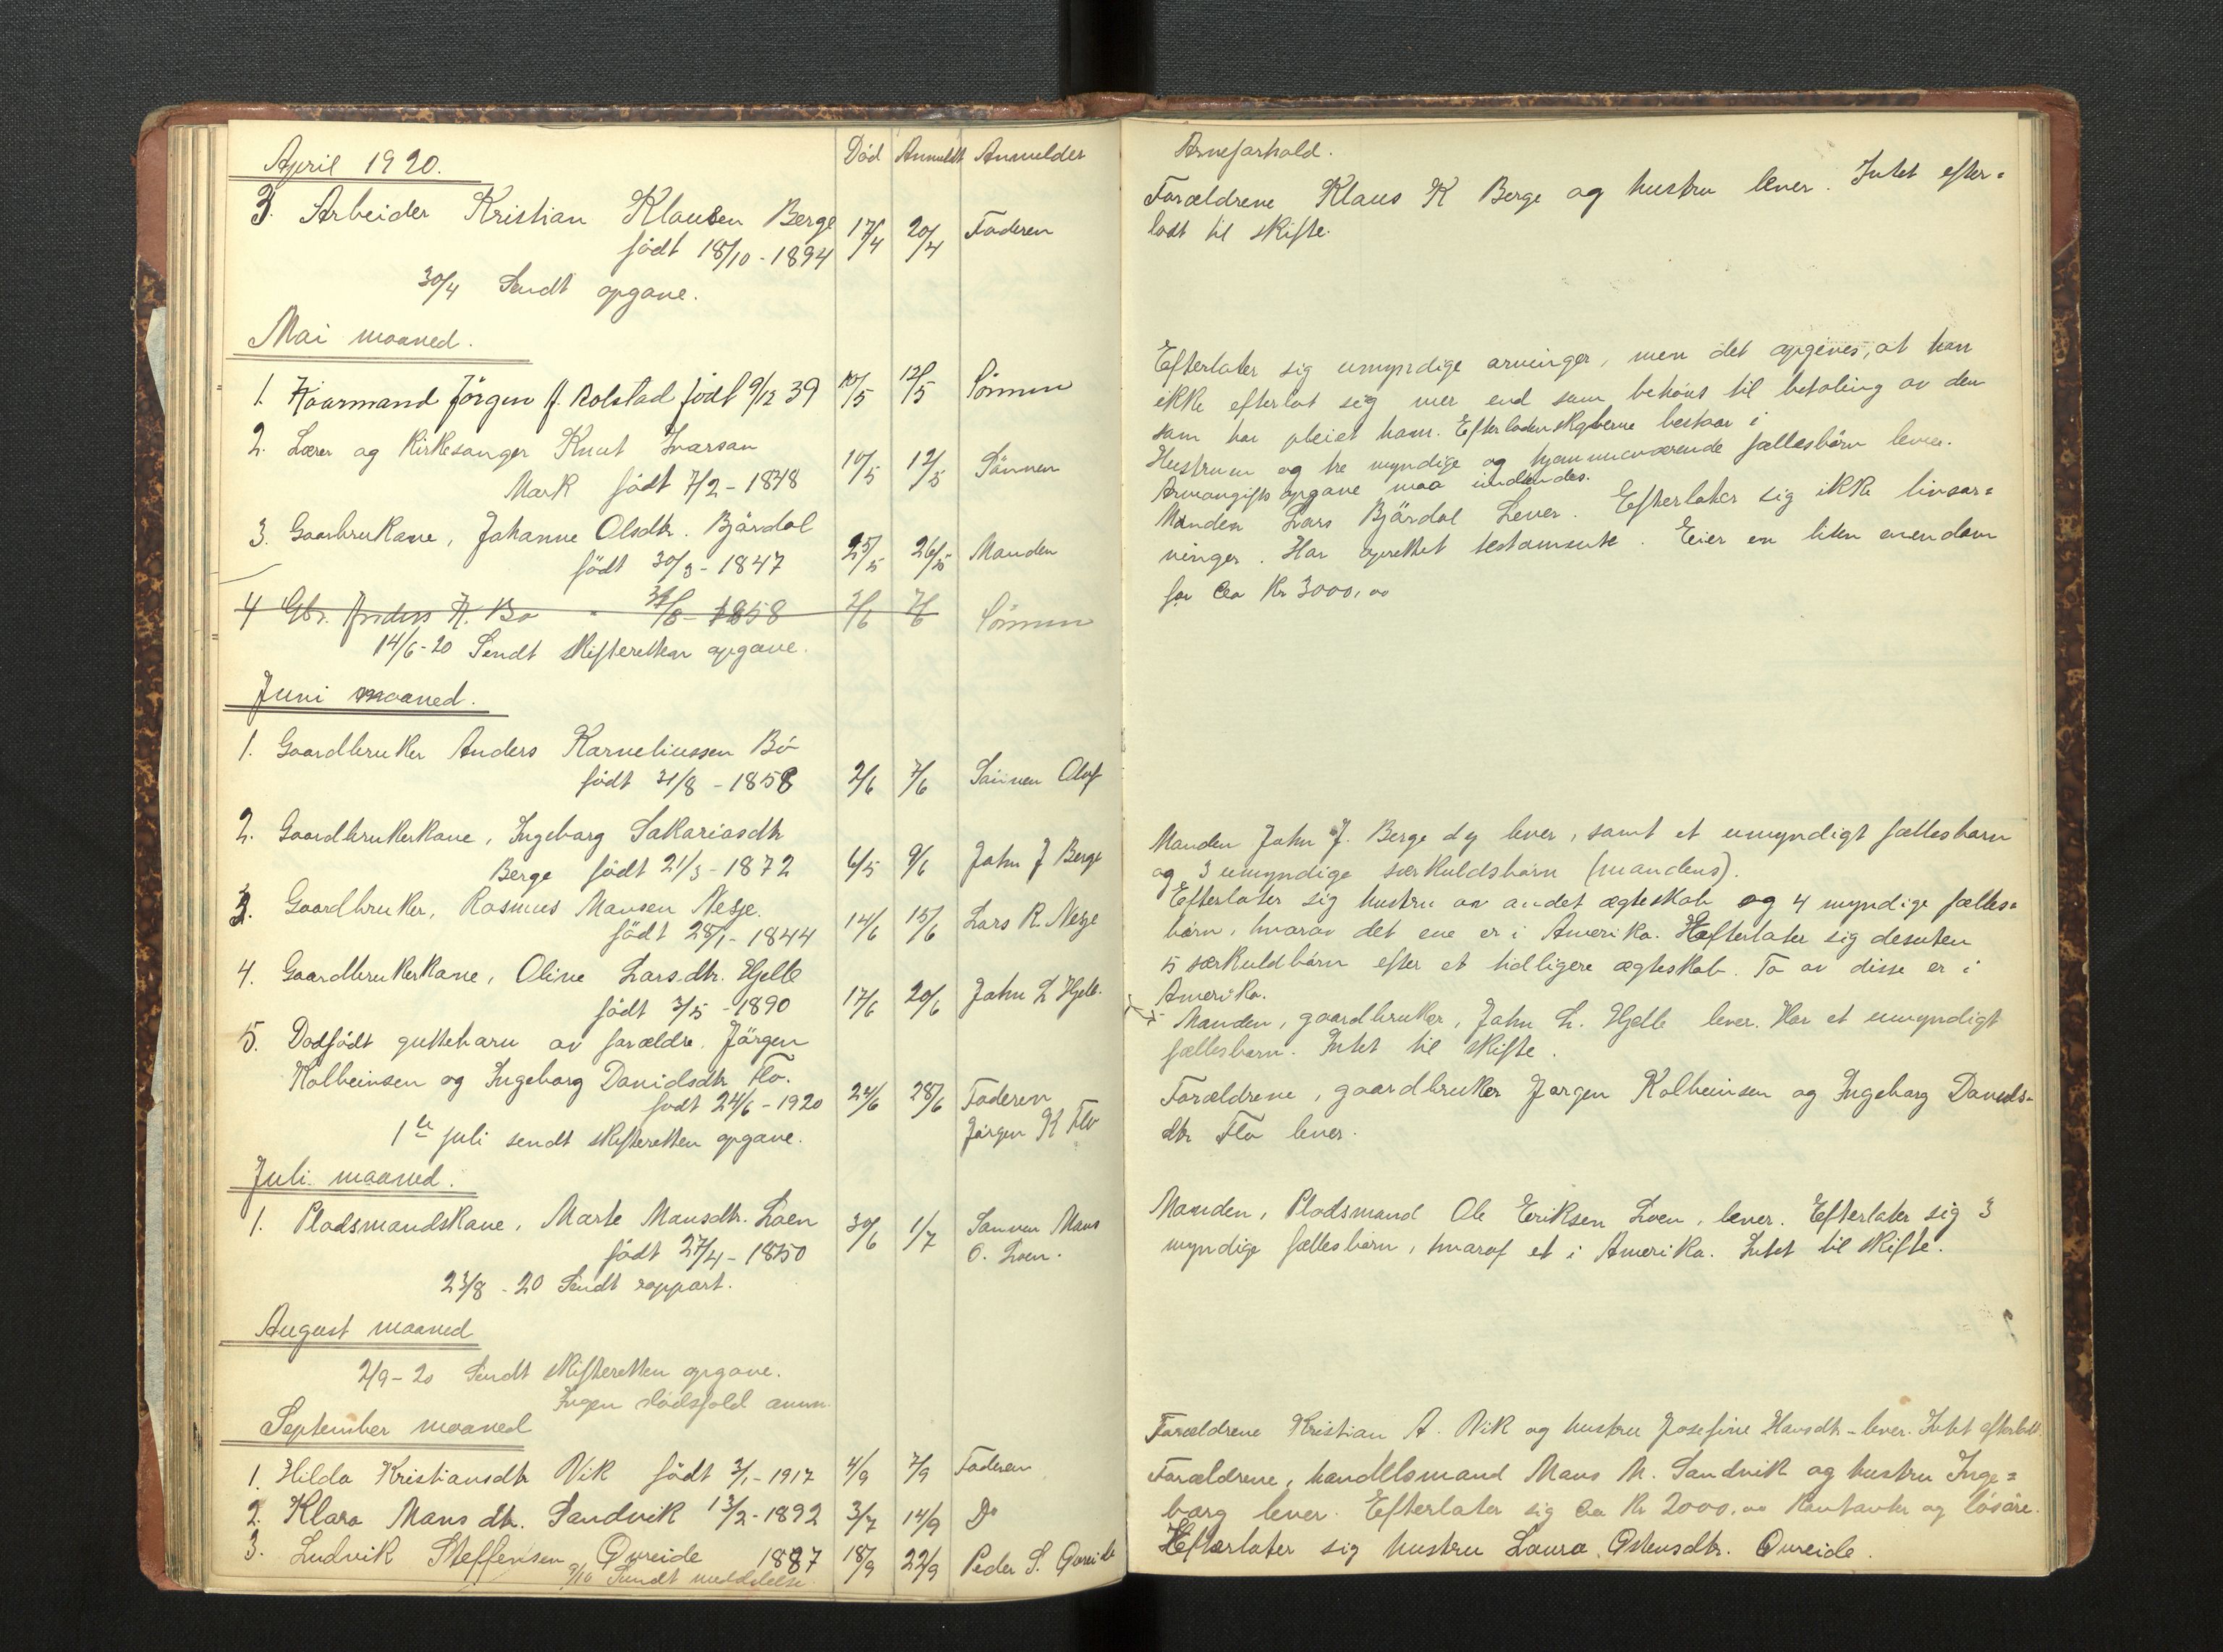 April 1920.
Död Anmeldt Anmelder
3. Arbeider Kristian Klausen Berge 17/4 20/4 Faderen
födt 18/10 - 1894
30/4 Sendt opgave.
Mai maaned.
1. Kaarmand Jörgen A. Rolstad födt 9/12 39 10/5 12/5 Sönnen
2. Lærer og Kirkesanger Knut Ivarson
Mark födt 7/2 - 1848 10/5 12/5 Sönnen
3. Gaarbrukane, Johanne Olsdtr. Bjärdal
födt 30/3 - 1847 25/5 26/5 Manden
4 Gbr. Anders K. Bö " 31/8 - 1858 2/6 7/6 Sönnen
14/6 - 20 Sendt skifteretten opgave.
Juni maaned.
1. Gaardbruker Anders Karneliussen Bö
födt 31/8 - 1858 2/6 7/6 Sönnen Oluf
2. Gaardbrukerkane, Ingeborg Sakariasdtr
Berge födt 21/3 - 1872 6/5 9/6 Jahn J Berge
3. Gaardbruker, Rasmus Mansen Nesje.
födt 28/1 - 1844 14/6 15/6 Lars R. Nesje
4. Gaardbrukerkane, Oline Larsdtr. Hjelle
födt 3/5 - 1890 17/6 20/6 Jahn L Hjelle.
5. Dödfödt guttebarn av forældre. Järgen
Kolbeinsen og Ingeborg Davidsdtr Flo.
födt 24/6 - 1920 24/6 28/6 Faderen
Järgen K Flo
1ste juli sendt skifteretten opgave.
Juli maaned.
1. Pladsmandskane, Marte Mansdtr. Loen 30/6 1/7 Sönnen Mans
födt 27/4 - 1850 O. Loen.
23/8 - 20 Sendt rapport.
August maaned
2/9 - 20 Sendt skifteretten opgave.
Ingen dödsfald anm.
September maaned
1. Hilda Kristiansdtr Vik födt 3/1 - 1917 4/9 7/9 Faderen
2. Klara Mans dtr. Sandvik 13/2 - 1892 3/7 14/9 Do
3. Ludvik Steffensen Qvreide 1887 18/9 22/9 Peder S. Qvreide
2/10 Sendt meddelelse
Arveforhold.
Forældrene Klaus K Berge og hustru lever. Intet efter=
ladt til skifte.
Efterlater sig umyndige arvinger, men det opgives, at han
ikke efterlot sig mer end som behøvs til betaling av den
som har pleiet ham. Efterladenskaberne bestaar i
Hustruen og tre myndige og hjemmeværende fællesbörn lever.
Arveavgifts opgave maa indsendes.
Manden Lars Bjärdal Lever. Efterlater sig ikke livsar=
vinger. Har oprettet testamente. Eier en liten eiendom
for Ca Kr 3000,00
Manden Jahn J. Berge dy lever, samt et umyndigt fællesbarn
og 3 umyndige særkuldsbörn (mandens).
Efterlater sig hustru av andet ægteskab og 4 myndige fælles=
börn, hvorav det ene er i Amerika. Efterlater sig desuten
5 særkuldbörn efter et tidligere ægteskab. To av disse er i
Amerika.
Manden, gaardbruker, Jahn L. Hjelle lever. Har et umyndigt
fællesbarn. Intet til skifte.
Forældrene, gaardbruker Jørgen Kolbeinsen og Ingeborg Davids-
dtr Flo lever.
Manden, Pladsmand Ole Eriksen Loen, lever. Efterlater sig 3
myndige fællesbörn, hvoraf et i Amerika. Intet til skifte.
Forældrene Kristian A. Vik og hustru Josefine Hansdtr - lever. Intet efterladt
Forældrene, handelsmand Mans M. Sandvik og hustru Inge=
borg lever. Efterlater sig Ca Kr 2000,00 Kontanter og lösöre.
Efterlater sig hustru Laura Ostensdtr. Qvreide.